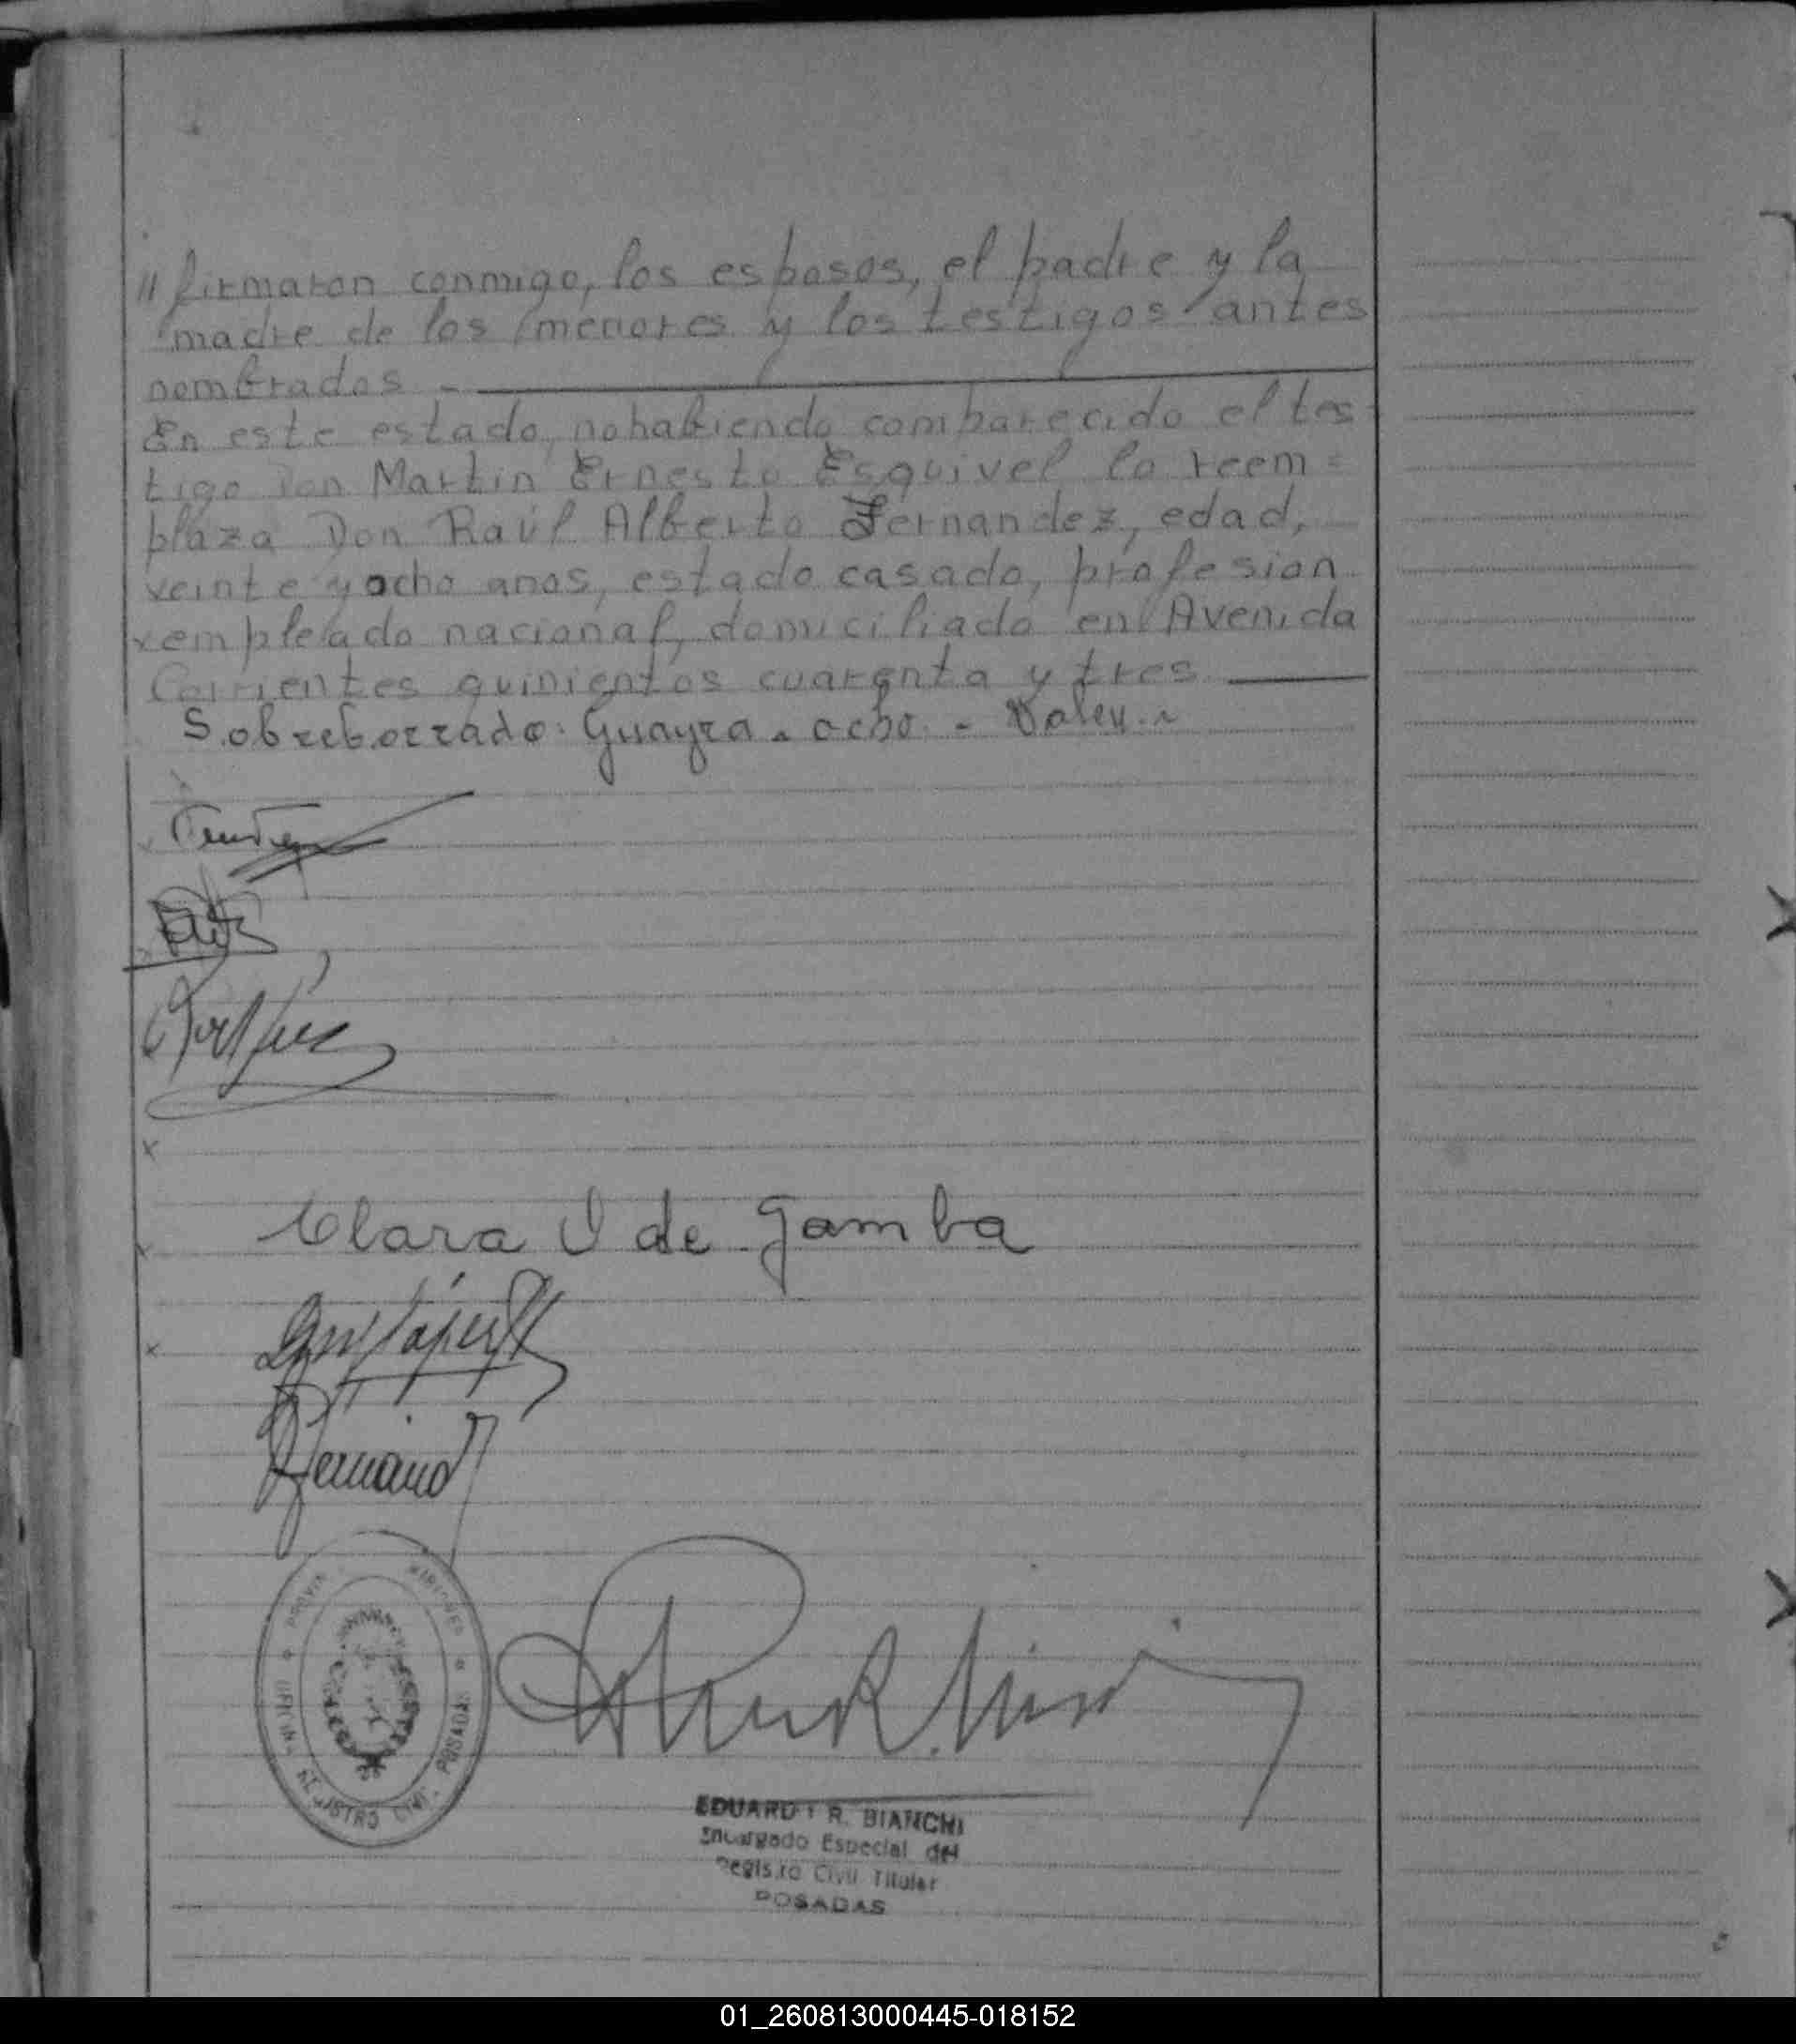 // firmaron conmigo, los esposos, el padre y la
madre de los menores y los testigos antes
nombrados -
En este estado, no habiendo comparecido el tes-
tigo Don Martin Ernesto Esquivel lo reem=
plaza Don Raúl Alberto Fernandez, edad,
veinte y ocho anos, estado casado, profesion
x empleado nacional, domiciliado en Avenida
Corrientes quinientos cuarenta y tres
Sobreborrado: Guayra - ocho - Valen
x
Clara I de Gamba
x
PROVIN MISIONES
REGISTRO CIVIL POSADAS
EDUARDO R. BIANCHI
Encargado Especial del
Registro Civil Titular
POSADAS
01_260813000445-018152